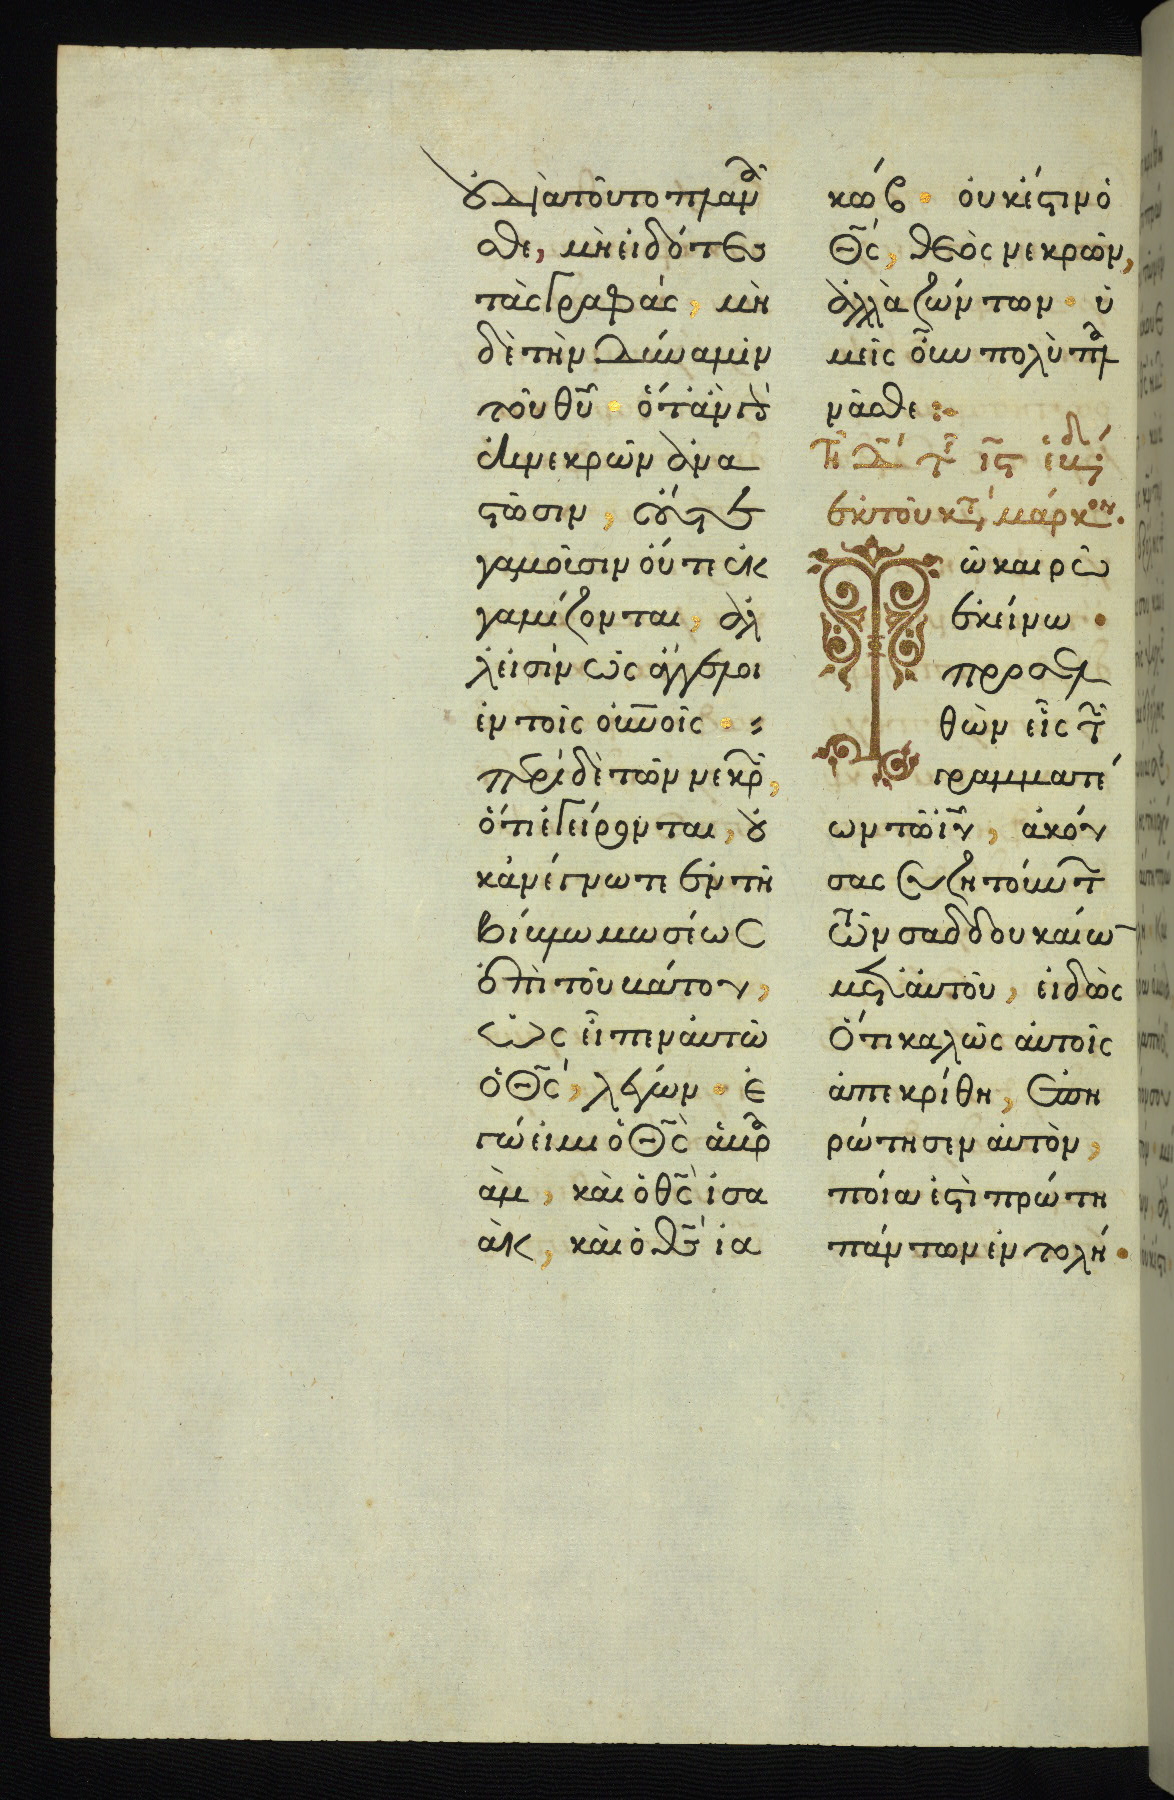 οὐ διατοῦτο πλανᾶ
σθε, μὴ εἰδότες
τὰς γραφάς, μη
δὲ τὴν δύναμιν
τοῦ θῦ. ὅταν γὰρ
ἐκ νεκρῶν ἀνα
στῶσιν, οὔτε
γαμοῦσιν οὔτε ἐκ
γαμίζονται, ἀλ
λ' εἰσὶν ὡς ἄγγελοι
ἐν τοῖς οὐνοῖς.
περὶ δὲ τῶν νεκρῶ,
ὅτι ἐγείρονται, οὐ
κ ἀνέγνωτε ἐν τῇ
βίβλω μωσέως
ἐπὶ τοῦ βάτου,
ὡς εἶπεν αὐτῶ
ὁ Θς, λέγων. ἐ
γώ εἰμι ὁ Θς ἀβρα
ὰμ, καὶ ὁ θς ἰσα
ὰκ, καὶ ὁ θς ἰα
κώβ. οὐκ ἔστιν ὁ
Θς, θεὸς νεκρῶν,
ἀλλὰ ζώντων. ὑ
μεῖς οὖν πολὺ πλα
νᾶσθε:
Τῇ δ τῆς ις ἑβδ
ἐκ τοῦ κατὰ μάρκον.
Τῶ καιρῶ
ἐκείνω.
προσελ
θὼν εἷς τῶν
γραμματέ
ων τῶ ιυ, ἀκού
σας συζητούντ
ων σαδδουκαίων
μετ' αὐτοῦ, εἰδὼς
ὅτι καλῶς αὐτοῖς
ἀπεκρίθη, ἐπη
ρώτησεν αὐτὸν,
ποία ἐστὶ πρώτη
πάντων ἐντολή.